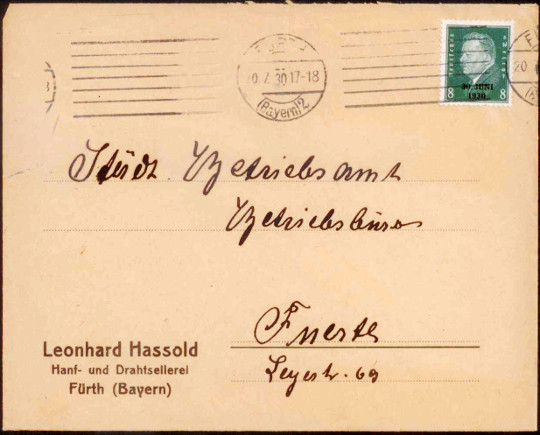 FÜRTH
20.7.30 17-18
(Bayern) 2
Deutsches Reich
30. JUNI
1930
8 8
Städt. Betriebsamt
Betriebsbüro
Fuerth
Leyerstr. 69
Leonhard Hassold
Hanf- und Drahtseilerei
Fürth (Bayern)